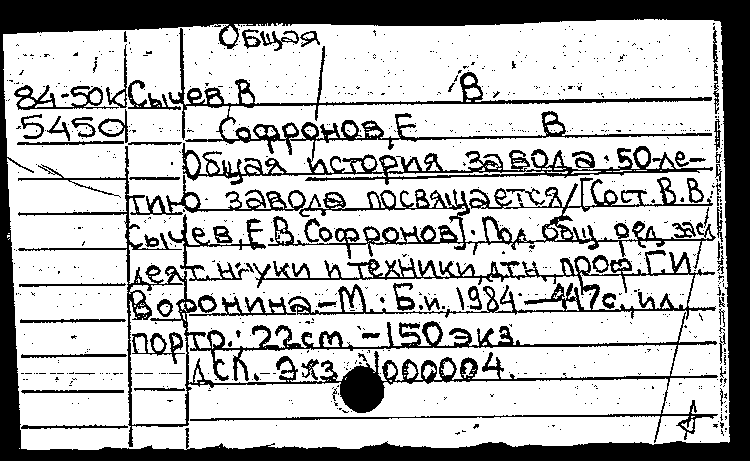 Общая
84-50К Сычев, В В
5450 Софронов, Е В
Общая история завода: 50-ле-
тию завода посвящается/[Сост. В.В.
Сычев, Е.В. Софронов]; Под общ. ред. засл
деят. науки и техники, д.т.н., проф. Г.И.
Воронина.-М.: Б.и., 1984.-447с., ил.
портр.; 22см. -150 экз.
ДСП. Экз N000004.